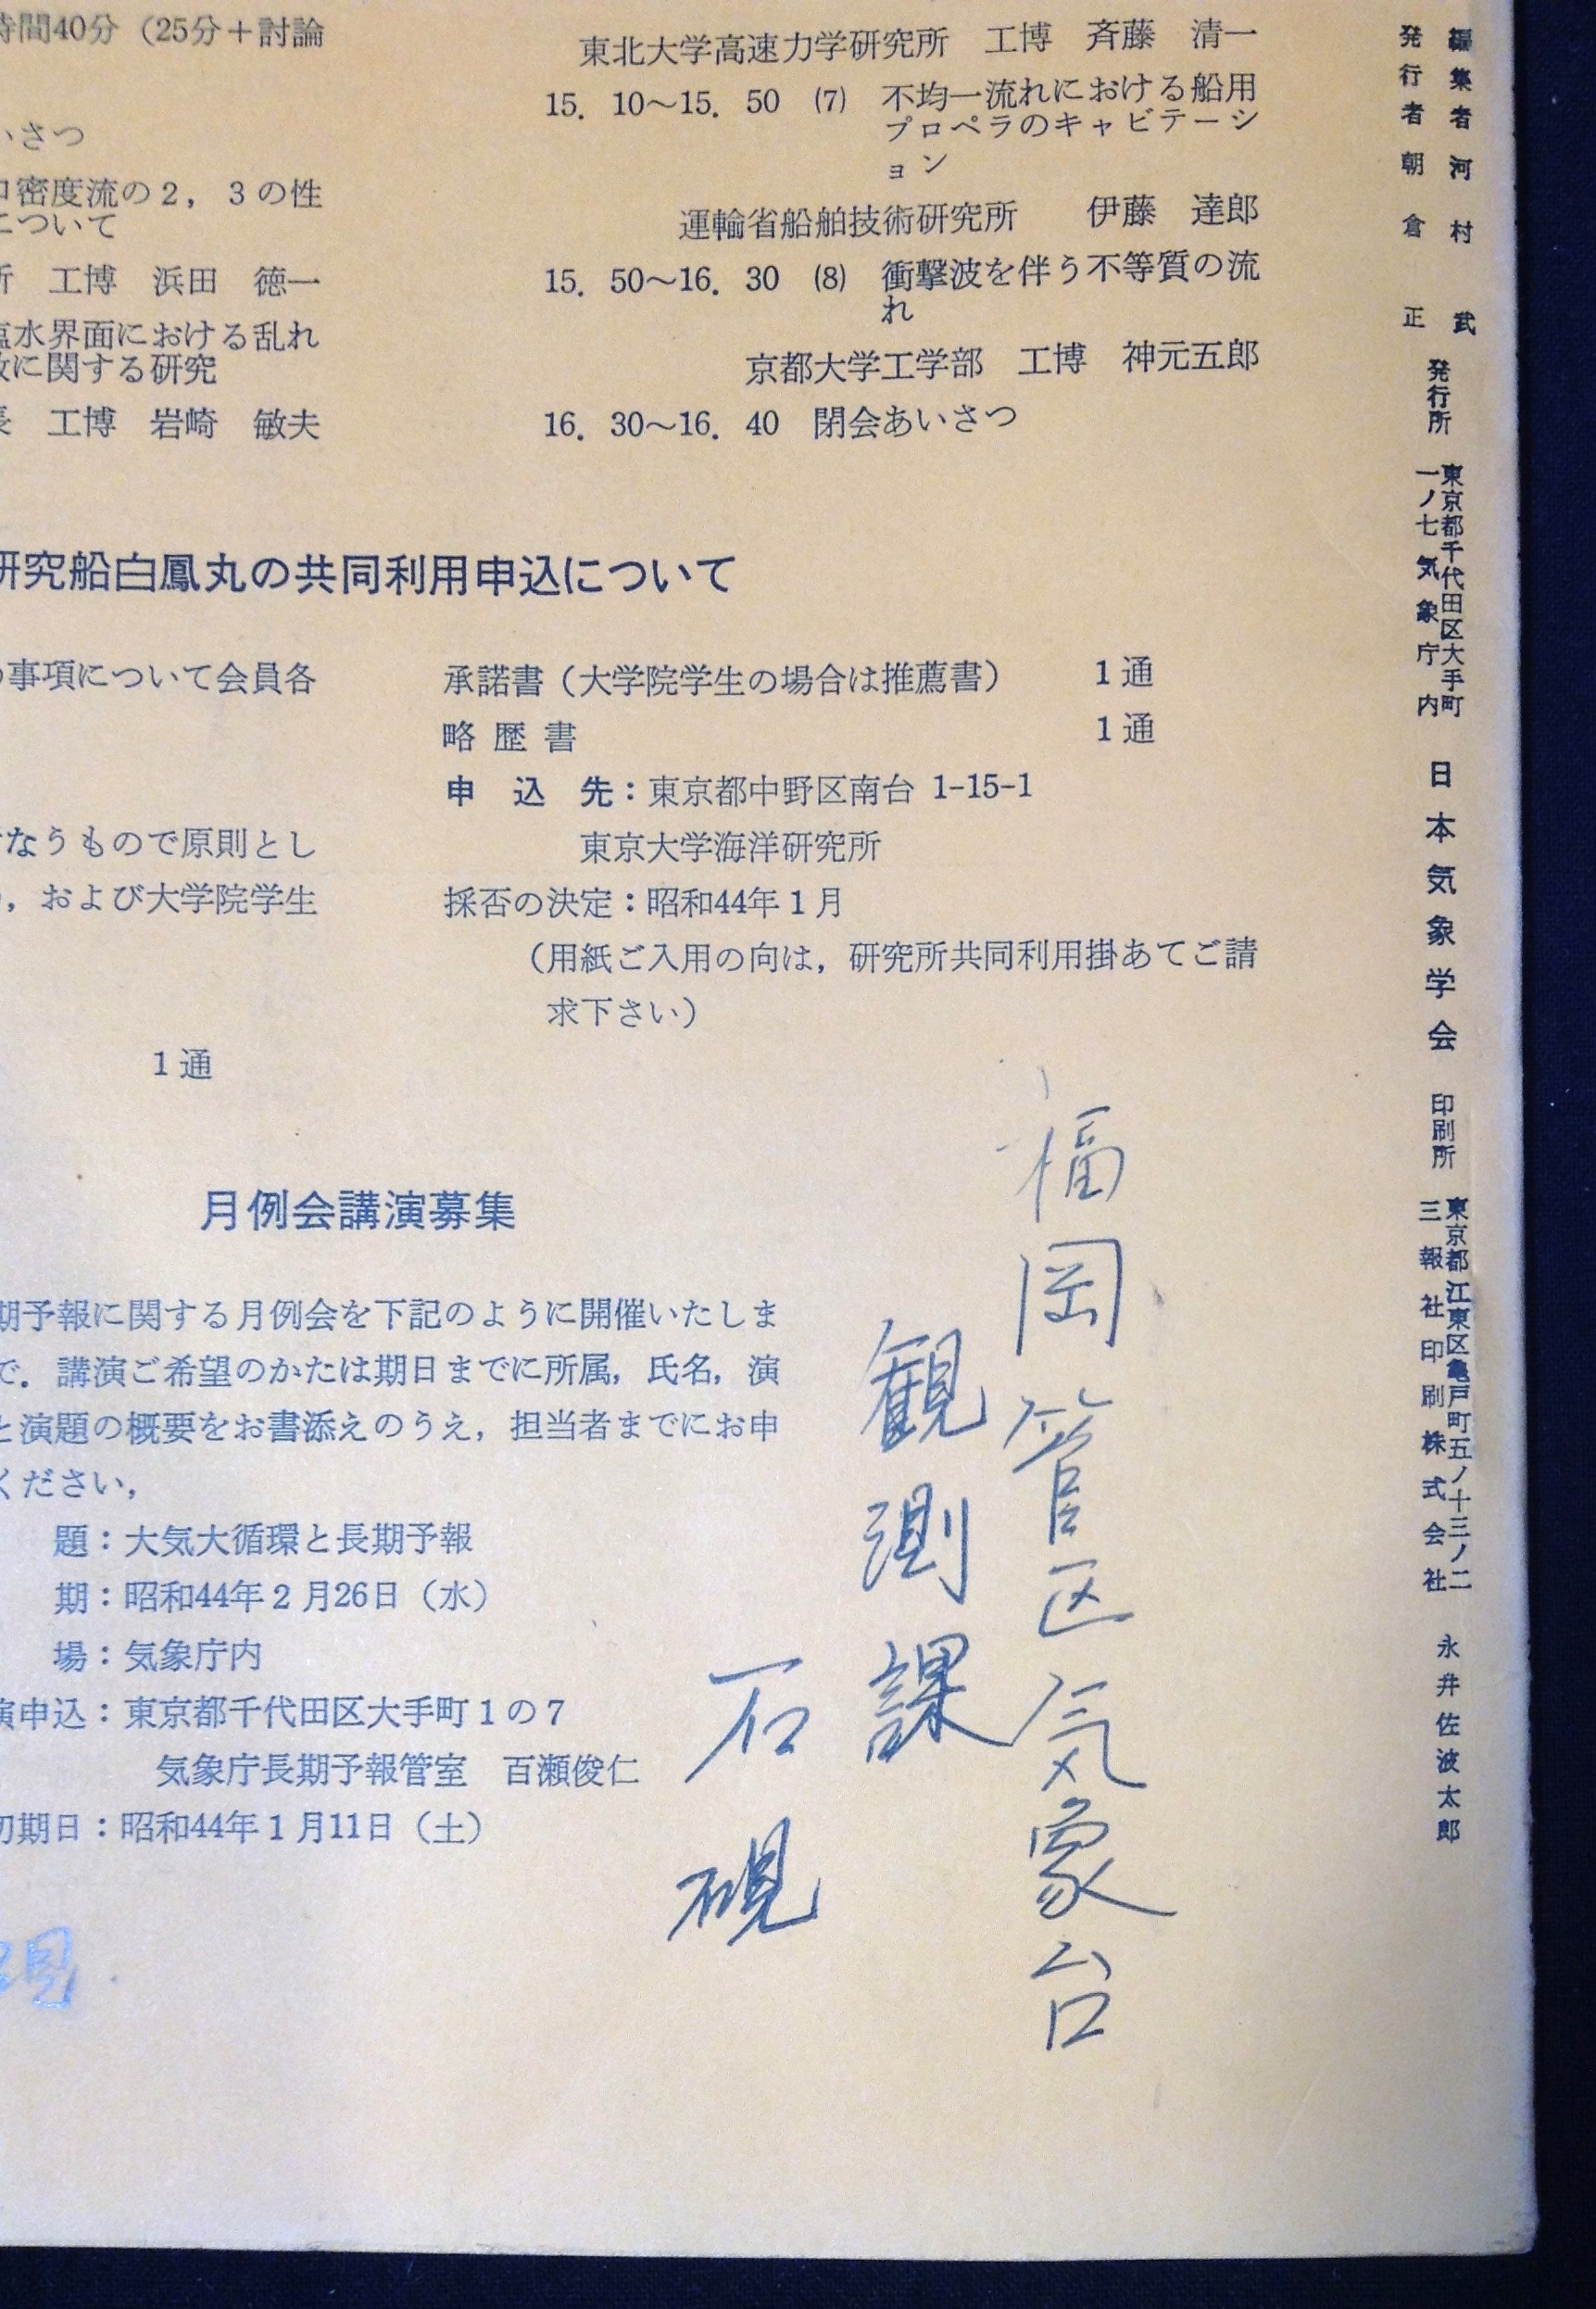 時間40分（25分＋討論
いさつ
密度流の2，3の性
について
所　工博　浜田　徳一
塩水界面における乱れ
に関する研究
長　工博　岩崎　敏夫
東北大学高速力学研究所　工博　斉藤　清一
15．10～15．50　(7)　不均一流れにおける船用
プロペラのキャビテーシ
ョン
運輸省船舶技術研究所　伊藤　達郎
15．50～16．30　(8)　衝撃波を伴う不等質の流
れ
京都大学工学部　工博　神元五郎
16．30～16．40　閉会あいさつ
研究船白鳳丸の共同利用申込について
の事項について会員各
なうもので原則とし
，および大学院学生
1通
承諾書（大学院学生の場合は推薦書）　1通
略歴書　1通
申　込　先：東京都中野区南台 1-15-1
東京大学海洋研究所
採否の決定：昭和44年1月
（用紙ご入用の向は，研究所共同利用掛あてご請
求下さい）
月例会講演募集
期予報に関する月例会を下記のように開催いたしま
で．講演ご希望のかたは期日までに所属，氏名，演
と演題の概要をお書添えのうえ，担当者までにお申
ください，
題：大気大循環と長期予報
期：昭和44年2月26日（水）
場：気象庁内
演申込：東京都千代田区大手町1の7
気象庁長期予報管室　百瀬俊仁
切期日：昭和44年1月11日（土）
福岡管区気象台
観測課
石硯
編集者　河村　武
発行者　朝倉　正
発行所
東京都千代田区大手町
一ノ七気象庁内
日本気象学会
印刷所
東京都江東区亀戸町五ノ十三ノ二
三報社印刷株式会社
永井佐波太郎